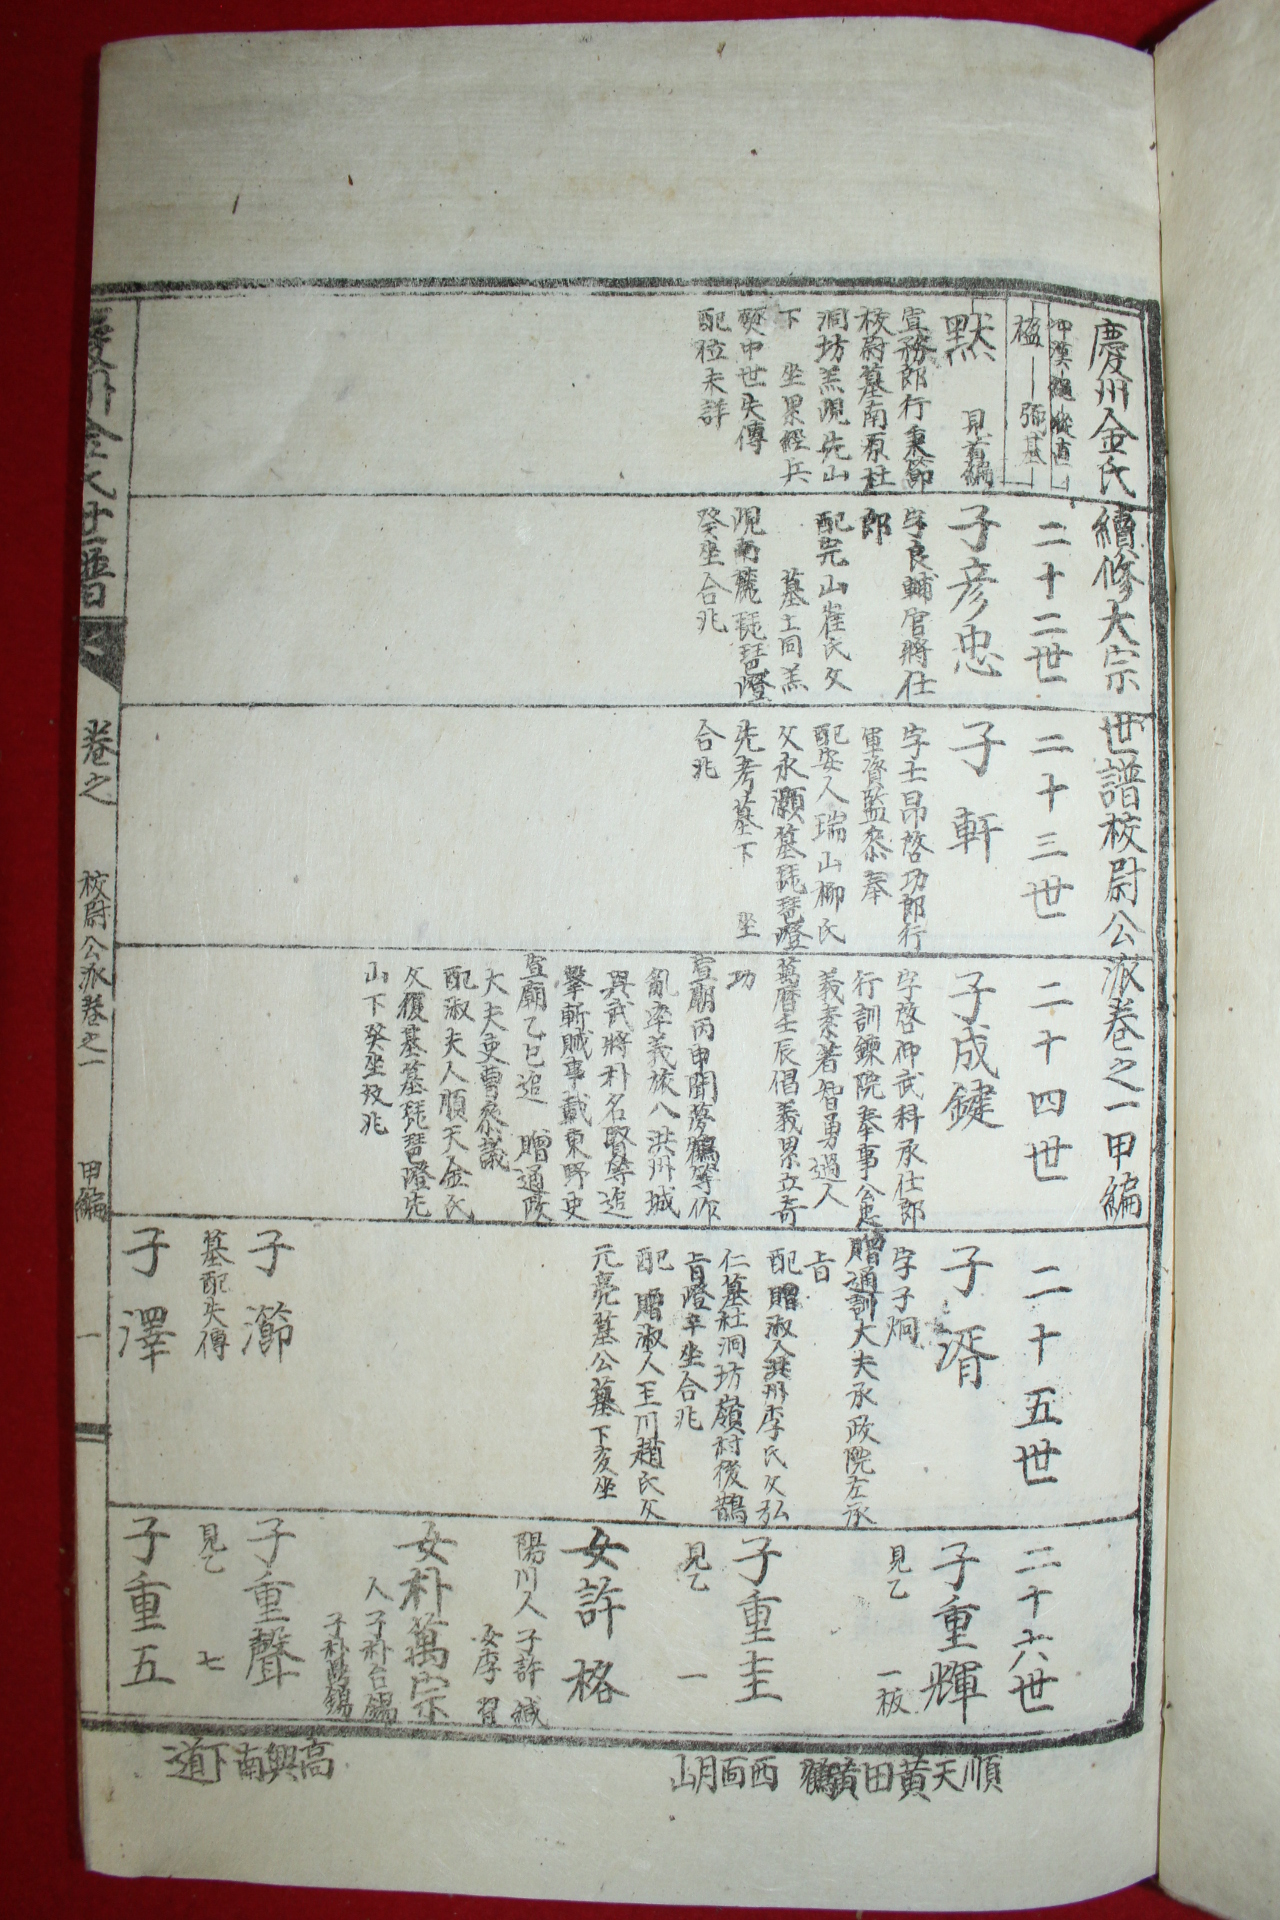 慶州金氏續修大宗世譜校尉公派卷之一甲編
楹 弼基
默
見首編
宣務郎行秉節
校尉墓南原杜
洞坊羔覞先山
下 坐累經兵
燹中世失傳
配位未詳
二十二世
子彦忠
字良輔官將仕
郎
配完山崔氏父
墓上同羔
覞南麓琵琶嶝
癸坐合兆
二十三世
子軒
字士昂啓功郎行
軍資監叅奉
配安人瑞山柳氏
父永灝墓琵琶嶝
先考墓下 坐
合兆
二十四世
子成鍵
字啓仰武科承仕郎
行訓鍊院奉事公忠
義素著智勇過人
萬曆壬辰倡義累立奇
功
宣廟丙申聞夢鶴等作
亂率義旅入洪州城
與武將朴名賢等追
擊斬賊事載東野史
宣廟乙巳追 贈通政
大夫吏曹叅議
配淑夫人順天金氏
父復基墓琵琶嶝先
山下癸坐双兆
二十五世
子湑
字子炯
贈通訓大夫承政院左承
旨
配 贈淑人洪州李氏父弘
仁墓杜洞坊嶺村後鵲
旨嶝辛坐合兆
配 贈淑人玉川趙氏父
元亮墓公墓下亥坐
子瀄
墓配失傳
子澤
二十六世
子重輝
見乙 一板
子重圭
見乙 一
女許格
陽川人 子許緘
女李習
女朴萬宗
人 子朴台錫
子重聲
見乙 七
子重五
卷之 校尉公派卷之一 甲編 一
順天黃田黃鶴 西面月山
高興南下道